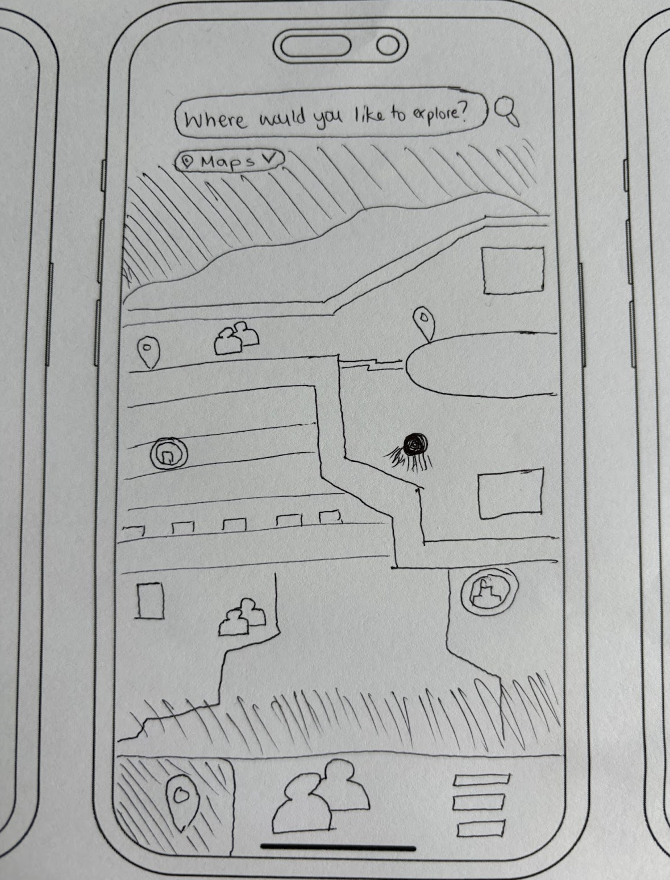 Where would you like to explore?
Maps